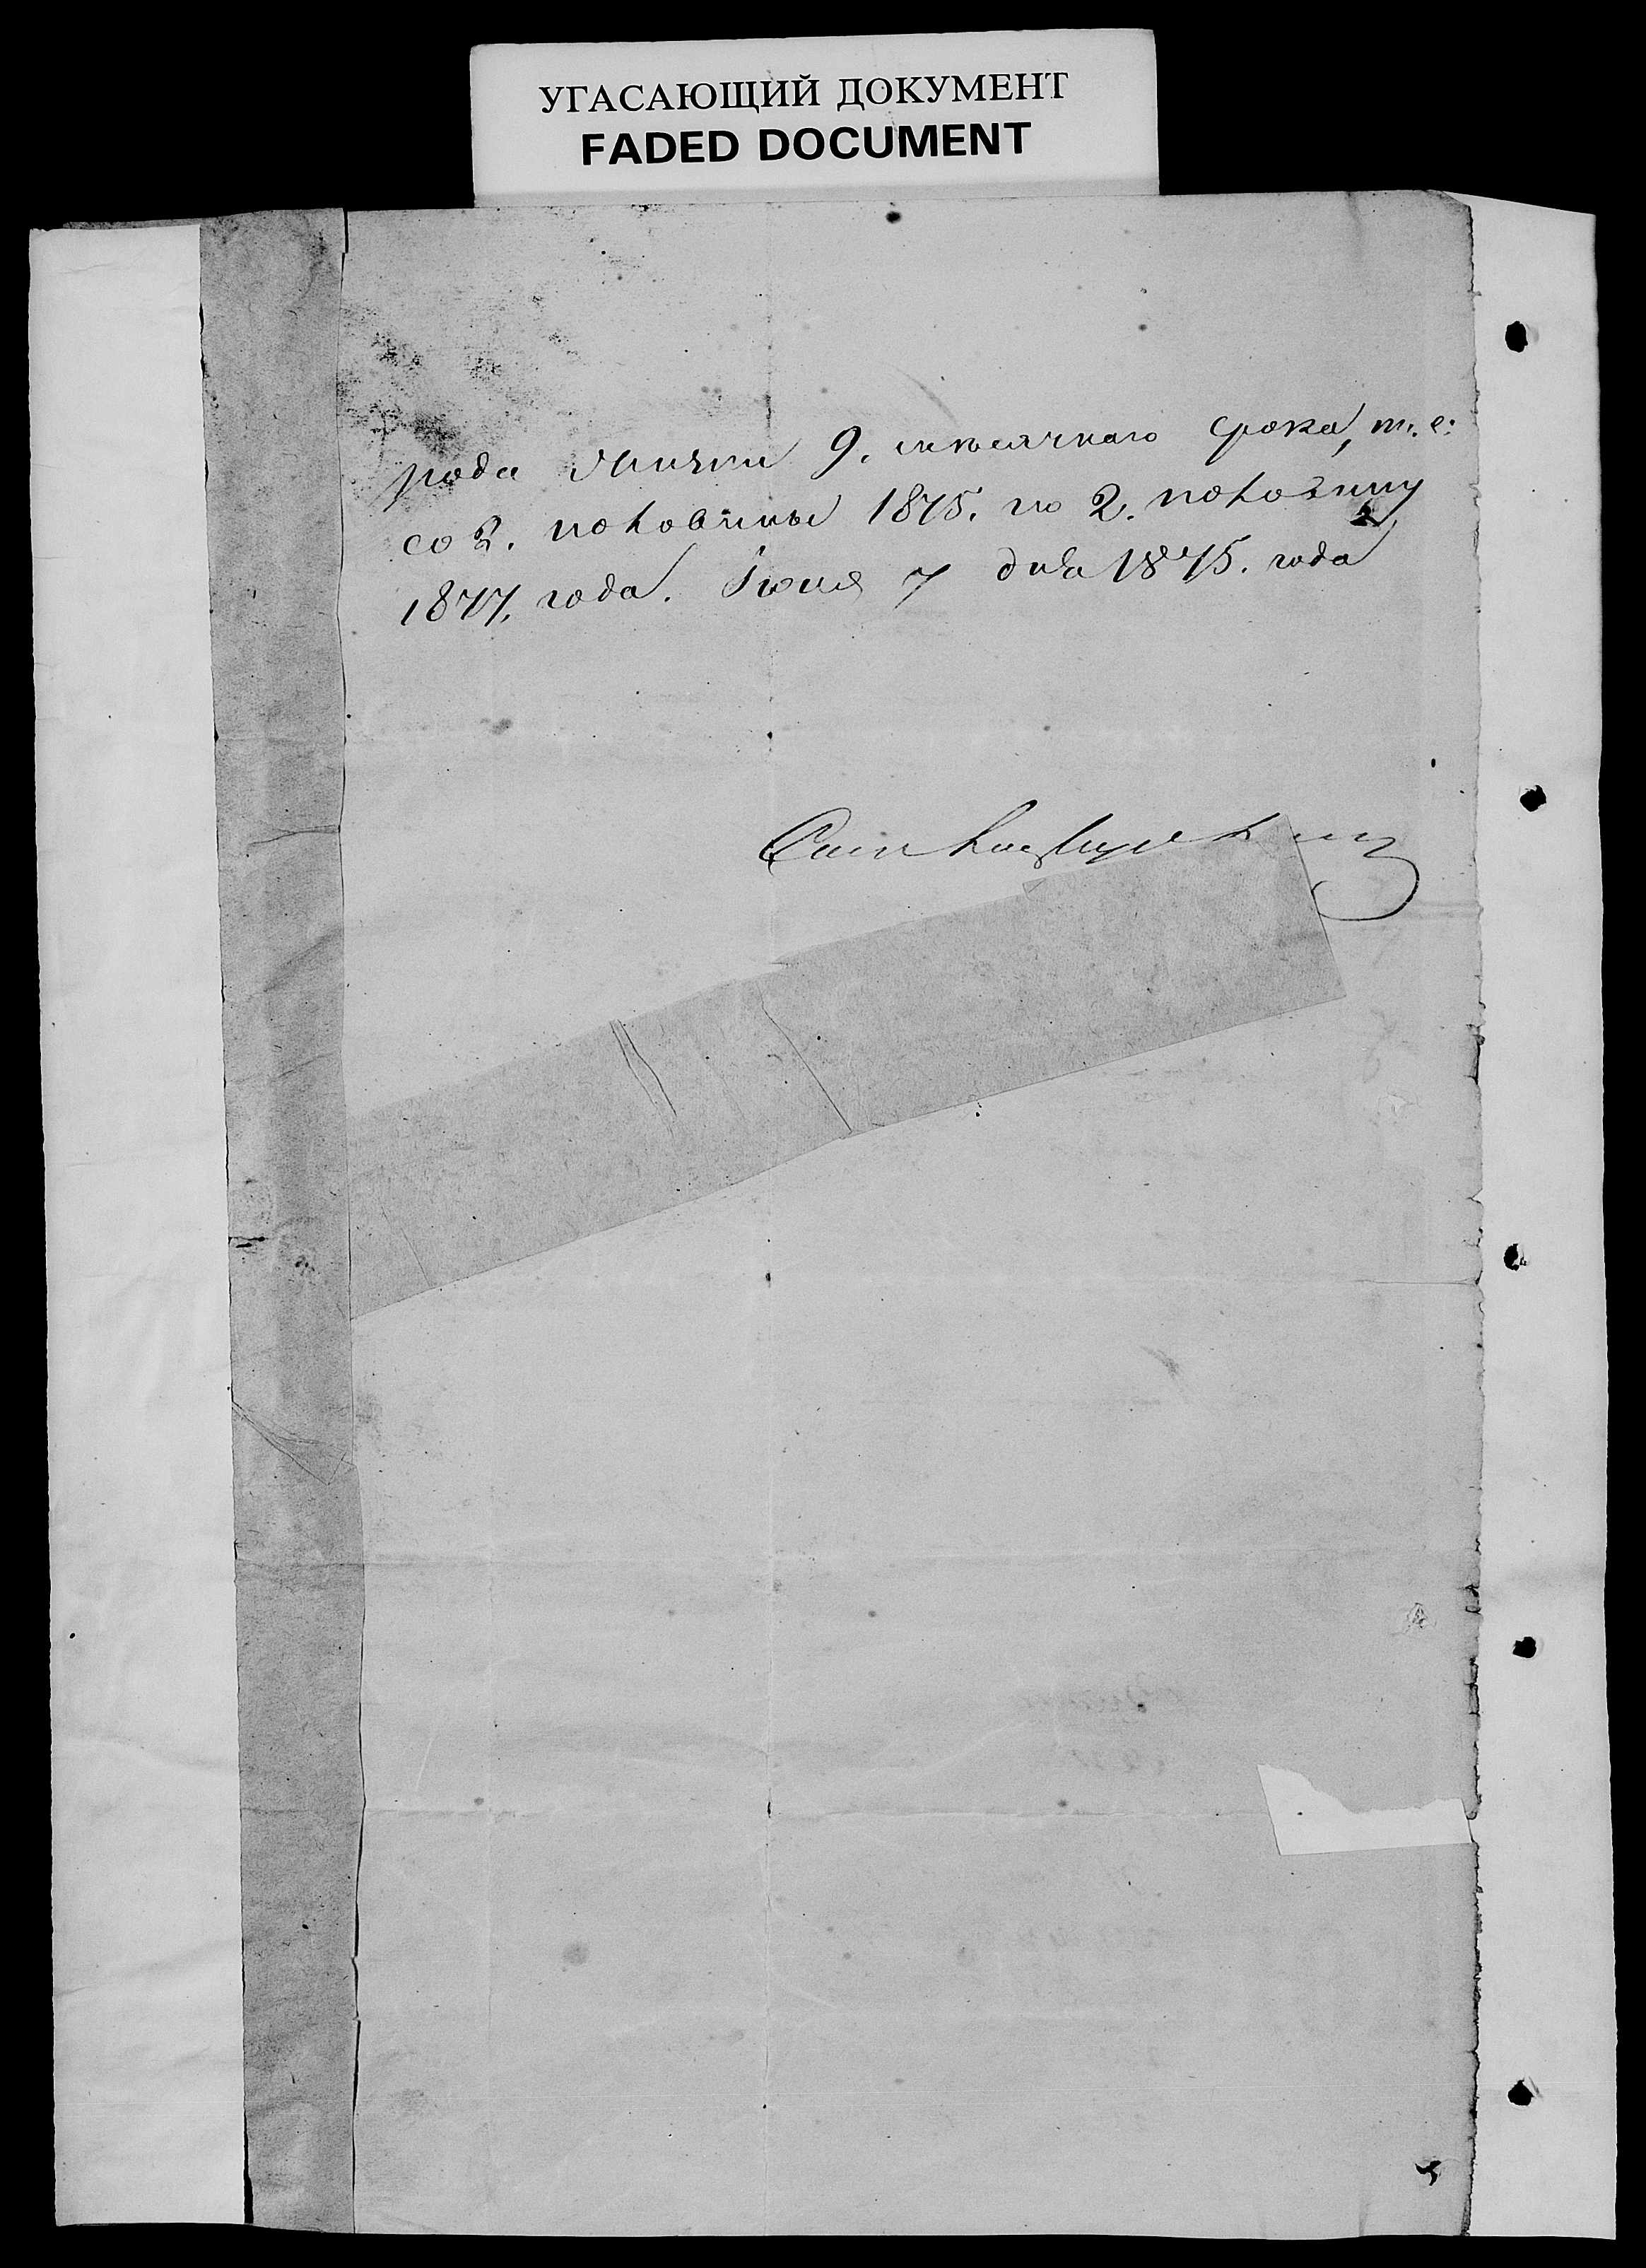 УГАСАЮЩИЙ ДОКУМЕНТ
FADED DOCUMENT
рода 9. мѣсячнаго срока, т. е:
со 2. половины 1875. по 2. половину
1877. года. Іюня 7 дня 1875. года